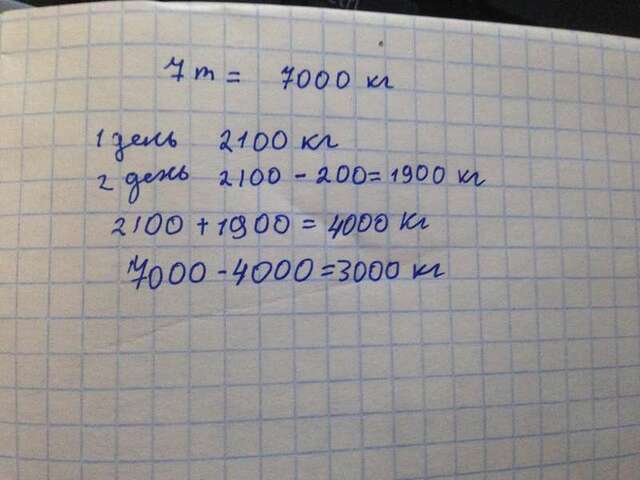 7 т = 7000 кг
1 день 2100 кг
2 день 2100 - 200 = 1900 кг
2100 + 1900 = 4000 кг
7000 - 4000 = 3000 кг